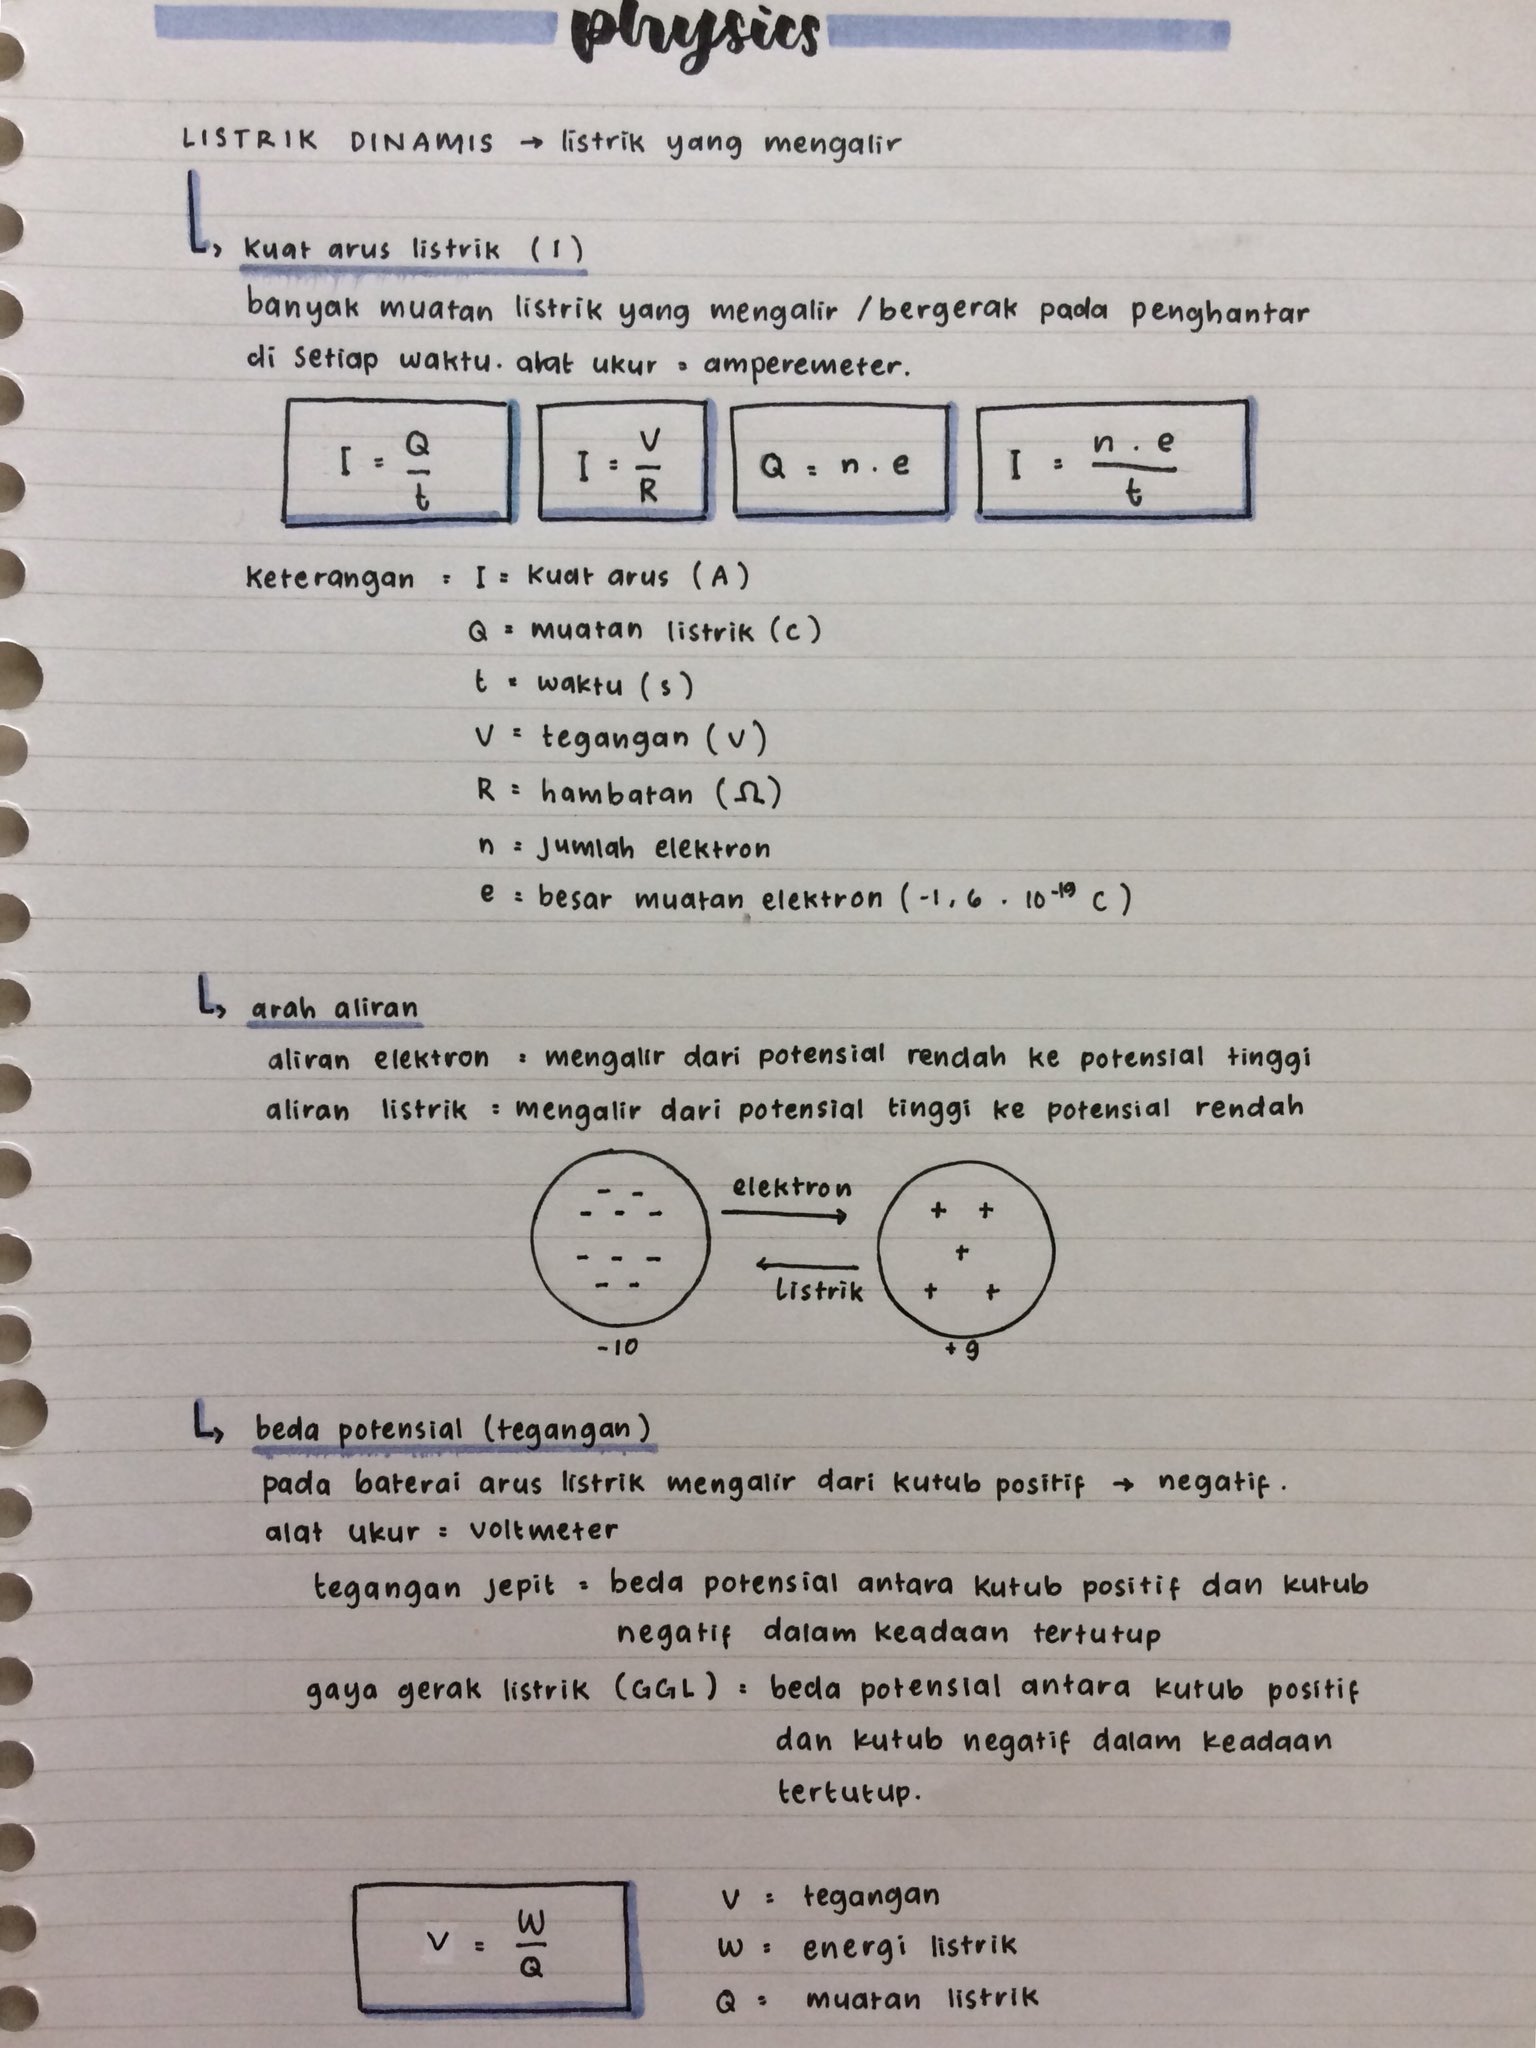 physics
LISTRIK DINAMIS → listrik yang mengalir
↳ kuat arus listrik (I)
banyak muatan listrik yang mengalir / bergerak pada penghantar
di setiap waktu. alat ukur = amperemeter.
I = Q/t I = V/R Q = n . e I = n . e / t
keterangan = I = kuat arus (A)
Q = muatan listrik (C)
t = waktu (s)
V = tegangan (V)
R = hambatan (Ω)
n = jumlah elektron
e = besar muatan elektron (-1,6 . 10⁻¹⁹ C)
↳ arah aliran
aliran elektron = mengalir dari potensial rendah ke potensial tinggi
aliran listrik = mengalir dari potensial tinggi ke potensial rendah
- - elektron + +
- - - +
- - - listrik + +
- -
-10 +9
↳ beda potensial (tegangan)
pada baterai arus listrik mengalir dari kutub positif → negatif.
alat ukur = voltmeter
tegangan jepit = beda potensial antara kutub positif dan kutub
negatif dalam keadaan tertutup
gaya gerak listrik (GGL) = beda potensial antara kutub positif
dan kutub negatif dalam keadaan
tertutup.
V = W/Q
V = tegangan
W = energi listrik
Q = muatan listrik